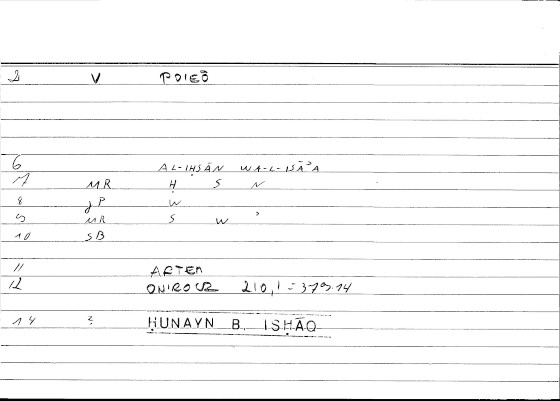 2 V POIEŌ
6 AL-IḤSĀN WA-L-ISĀʾA
7 MR Ḥ S N
8 gP W
9 MR S W ʾ
10 SB
11 ARTEM
12 ONIROCR 210,1 = 379.14
14 2 ḤUNAYN B. ISḤĀQ